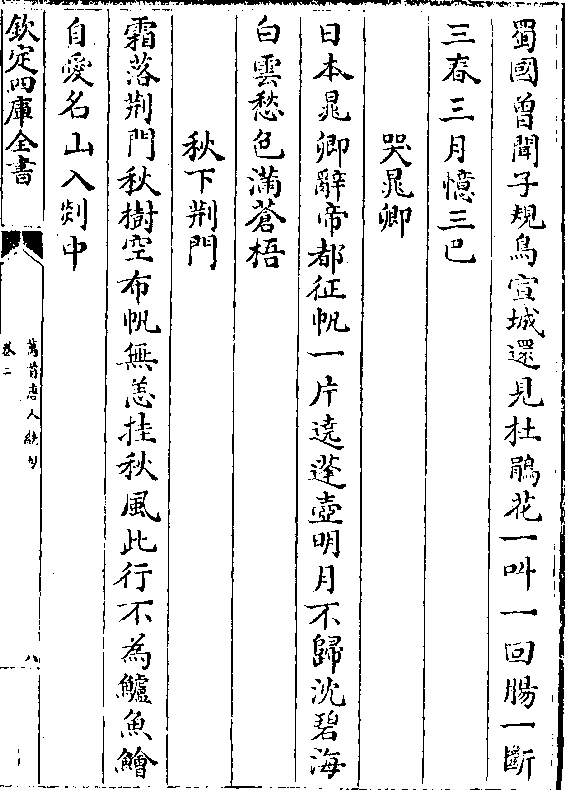 蜀國曾聞子規鳥宣城還見杜鵑花一叫一回腸一斷
三春三月憶三巴
哭晁卿
日本晁卿辭帝都征帆一片遶蓬壺明月不歸沈碧海
白雲愁色滿蒼梧
秋下荆門
霜落荆門秋樹空布帆無恙挂秋風此行不為鱸魚鱠
自愛名山入剡中
欽定四庫全書
萬首唐人絶句
卷二
八